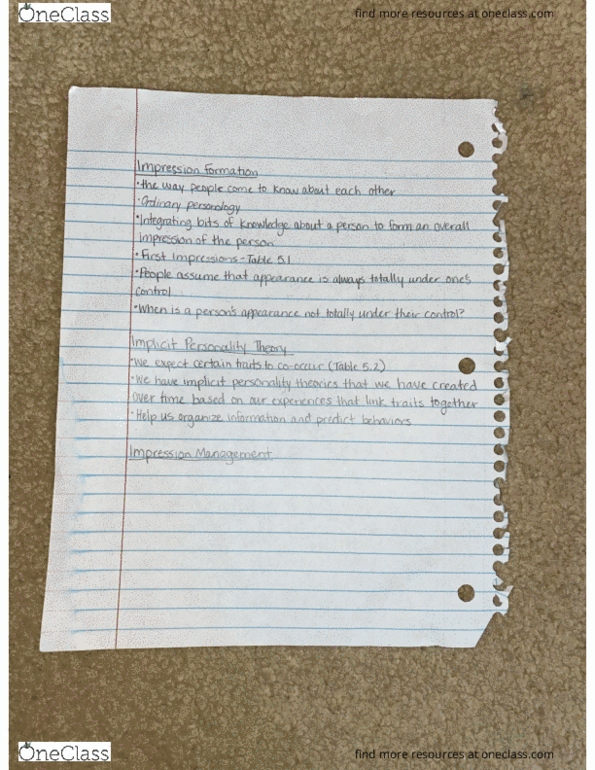 OneClass
find more resources at oneclass.com
Impression Formation
•the way people come to know about each other
•Ordinary personology
•Integrating bits of knowledge about a person to form an overall
impression of the person
•First Impressions - Table 5.1
•People assume that appearance is always totally under one's
control
•When is a person's appearance not totally under their control?
Implicit Personality Theory
•We expect certain traits to co-occur (Table 5.2)
•We have implicit personality theories that we have created
over time based on our experiences that link traits together
•Help us organize information and predict behaviors
Impression Management
OneClass
find more resources at oneclass.com